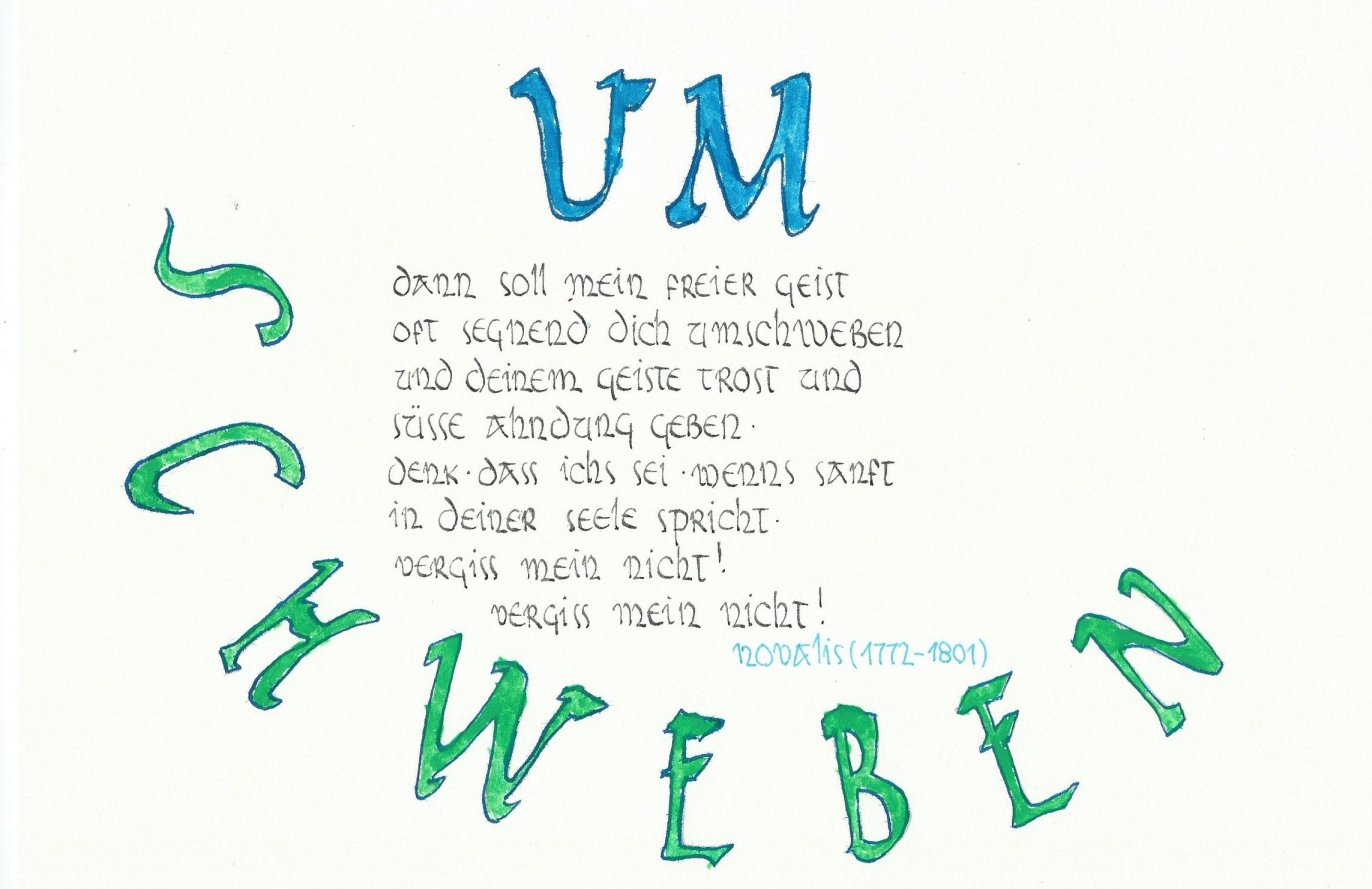 UM
dann soll mein freier geist
oft segnend dich umschweben
und deinem geiste trost und
süsse ahndung geben·
denk·dass ichs sei·wenns sanft
in deiner seele spricht·
vergiss mein nicht!
vergiss mein nicht!
novalis (1772-1801)
SCHWEBEN